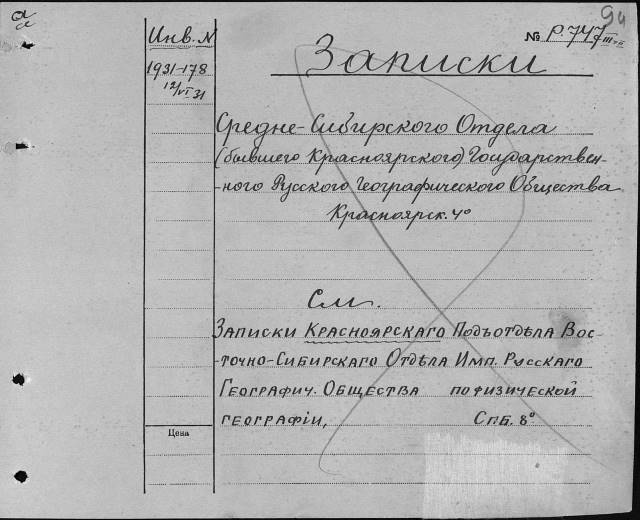 94
Инв. N
№ Р.747/III
1931-178
12/VI 31
Записки
Средне-Сибирского Отдела
(бывшего Красноярского) Государствен-
-ного Русского Географического Общества
Красноярск. 4°
См.
Записки Красноярскаго Подъотдѣла Вос-
-точно-Сибирскаго Отдѣла Имп. Русскаго
Географич. Общества по физической
географіи, Спб. 8°
Цена